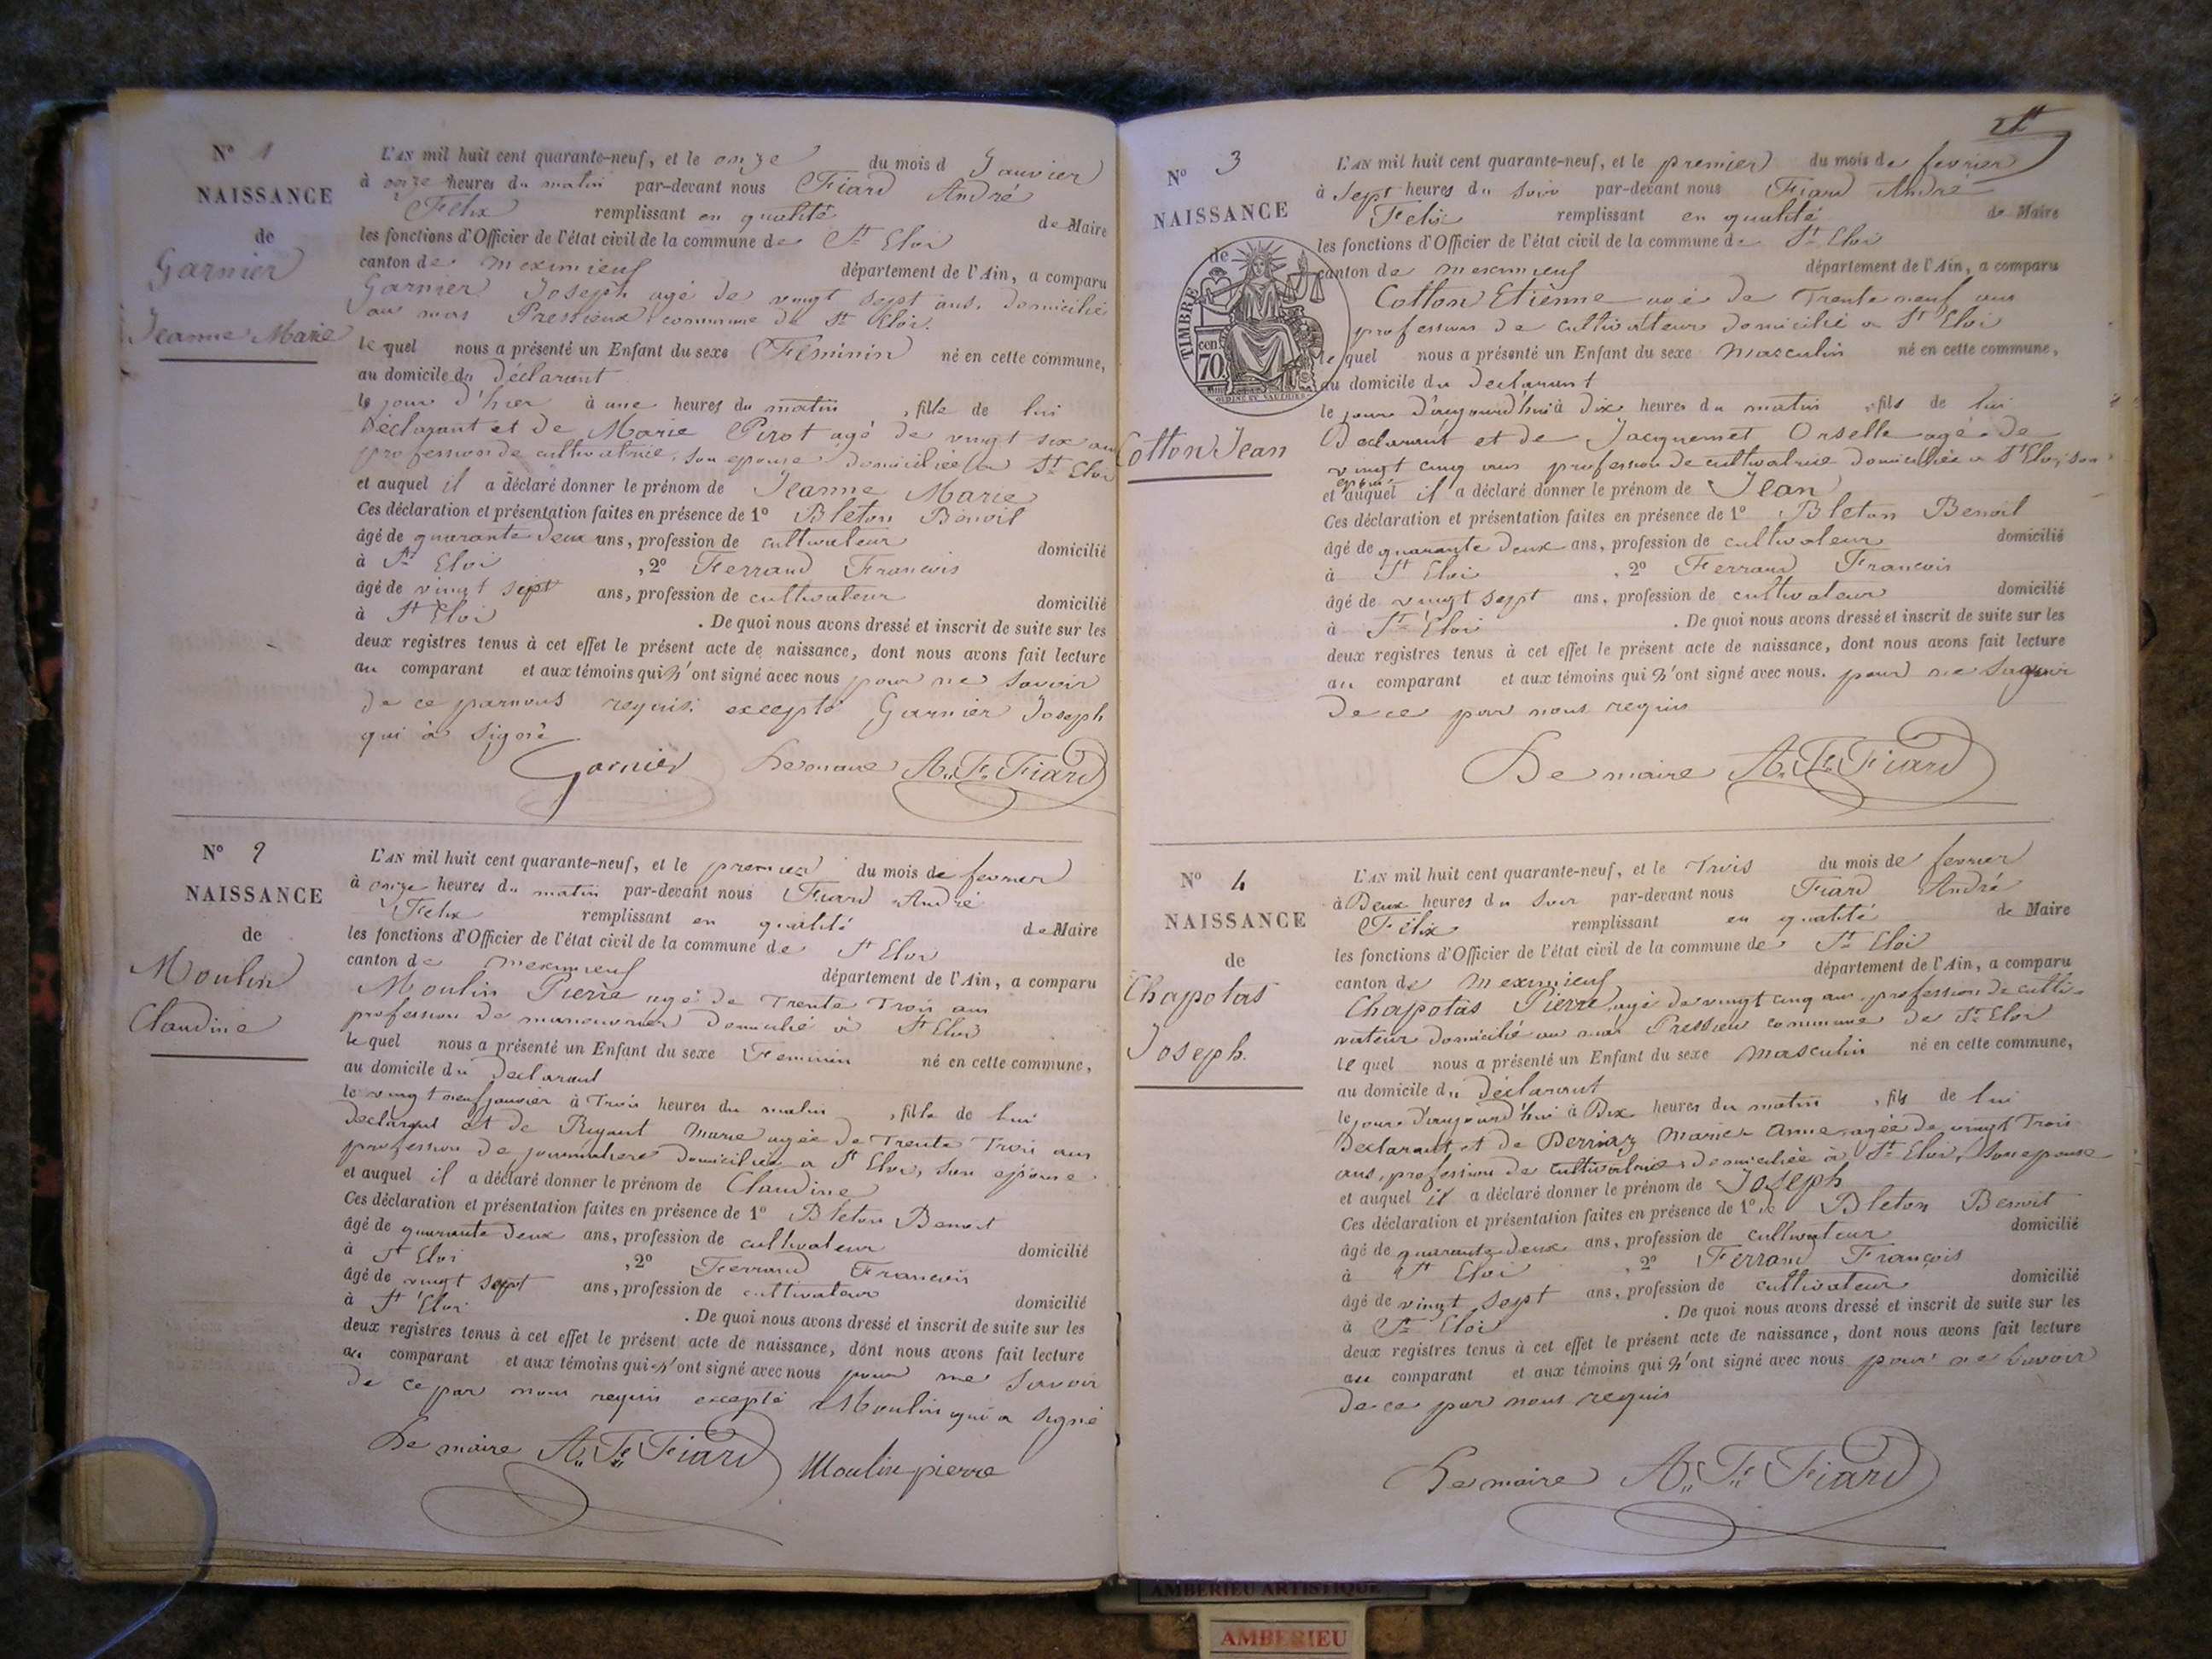 N° 1
NAISSANCE
de
Garnier
Jeanne Marie
L'AN mil huit cent quarante-neuf, et le onze du mois d Janvier
à onze heures du matin par-devant nous Fiard André
Felix remplissant en qualité de Maire
les fonctions d'Officier de l'état civil de la commune de St Eloi
canton de meximieux département de l'Ain, a comparu
Garnier Joseph agé de vingt sept ans. domicilié
au mas Pressieux commune de St Eloi.
lequel nous a présenté un Enfant du sexe Féminin né en cette commune,
au domicile du déclarant
le jour d'hier à une heures du matin , fille de lui
déclarant et de Marie Pirot agé de vingt six ans
profession de cultivatrice, son epouse domiciliée a St Eloi
et auquel il a déclaré donner le prénom de Jeanne Marie
Ces déclaration et présentation faites en présence de 1° Bleton Benoit
âgé de quarante deux ans, profession de cultivateur domicilié
à St Eloi , 2° Ferrand Francois
âgé de vingt sept ans, profession de cultivateur domicilié
à St Eloi . De quoi nous avons dressé et inscrit de suite sur les
deux registres tenus à cet effet le présent acte de naissance, dont nous avons fait lecture
au comparant et aux témoins qui n'ont signé avec nous pour ne savoir
de ce parnous requis excepté Garnier Joseph
qui à signé
Garnier Le maire A. F. Fiard
N° 2
NAISSANCE
de
Moulin
Claudine
L'AN mil huit cent quarante-neuf, et le premier du mois de fevrier
à onze heures du matin par-devant nous Fiard André
Felix remplissant en qualité de Maire
les fonctions d'Officier de l'état civil de la commune de St Eloi
canton de meximieux département de l'Ain, a comparu
Moulin Pierre agé de Trente Trois ans
profession de manouvrier domicilié à St Eloi
lequel nous a présenté un Enfant du sexe Feminin né en cette commune,
au domicile du declarant
le vingt neuf janvier à Trois heures du matin , fille de lui
declarant et de marie agée de Trente Trois ans
profession de journaliere domiciliée a St Eloi, son epouse
et auquel il a déclaré donner le prénom de Claudine
Ces déclaration et présentation faites en présence de 1° Bleton Benoit
âgé de quarante deux ans, profession de cultivateur domicilié
à St Eloi , 2° Ferrand Francois
âgé de vingt sept ans, profession de cultivateur domicilié
à St Eloi . De quoi nous avons dressé et inscrit de suite sur les
deux registres tenus à cet effet le présent acte de naissance, dont nous avons fait lecture
au comparant et aux témoins qui n'ont signé avec nous pour ne savoir
de ce par nous requis excepté Moulin qui a signé
Le maire A. F. Fiard Moulin pierre
N° 3
NAISSANCE
de
TIMBRE
cent
70
Cotton Jean
L'AN mil huit cent quarante-neuf, et le premier du mois de fevrier
à sept heures du soir par-devant nous Fiard André
Felix remplissant en qualité de Maire
les fonctions d'Officier de l'état civil de la commune de St Eloi
canton de meximieux département de l'Ain, a comparu
Cotton Etienne agé de Trente neuf ans
profession de cultivateur domicilié a St Eloi
lequel nous a présenté un Enfant du sexe masculin né en cette commune,
au domicile du declarant
le jour d'aujourd'hui à dix heures du matin , fils de lui
Declarant et de Jacquemet Orselle agé de
vingt cinq ans profession de cultivatrice domiciliée a St Eloi, son
epouse
et auquel il a déclaré donner le prénom de Jean
Ces déclaration et présentation faites en présence de 1° Bleton Benoit
âgé de quarante deux ans, profession de cultivateur domicilié
à St Eloi , 2° Ferrand Francois
âgé de vingt sept ans, profession de cultivateur domicilié
à St Eloi . De quoi nous avons dressé et inscrit de suite sur les
deux registres tenus à cet effet le présent acte de naissance, dont nous avons fait lecture
au comparant et aux témoins qui n'ont signé avec nous. pour ne
de ce par nous requis
Le maire A. F. Fiard
N° 4
NAISSANCE
de
Chapolas
Joseph.
L'AN mil huit cent quarante-neuf, et le Trois du mois de fevrier
à Deux heures du soir par-devant nous Fiard André
Félix remplissant en qualité de Maire
les fonctions d'Officier de l'état civil de la commune de St Eloi
canton de meximieux département de l'Ain, a comparu
Chapolas Pierre agé de vingt cinq ans, profession de culti-
vateur domicilié au mas Pressieu commune de St Eloi
lequel nous a présenté un Enfant du sexe masculin né en cette commune,
au domicile du déclarant
le jour d'aujourd'hui à Dix heures du matin , fils de lui
declarant, et de marie Anne agée de vingt Trois
ans, profession de cultivatrice domiciliée à St Eloi, son epouse
et auquel il a déclaré donner le prénom de Joseph
Ces déclaration et présentation faites en présence de 1° Bleton Benoit
âgé de quarante deux ans, profession de cultivateur domicilié
à St Eloi , 2° Ferrand François
âgé de vingt sept ans, profession de cultivateur domicilié
à St Eloi . De quoi nous avons dressé et inscrit de suite sur les
deux registres tenus à cet effet le présent acte de naissance, dont nous avons fait lecture
au comparant et aux témoins qui n'ont signé avec nous pour ne savoir
de ce par nous requis
Le maire A. F. Fiard
AMBERIEU ARTISTIQUE
AMBERIEU